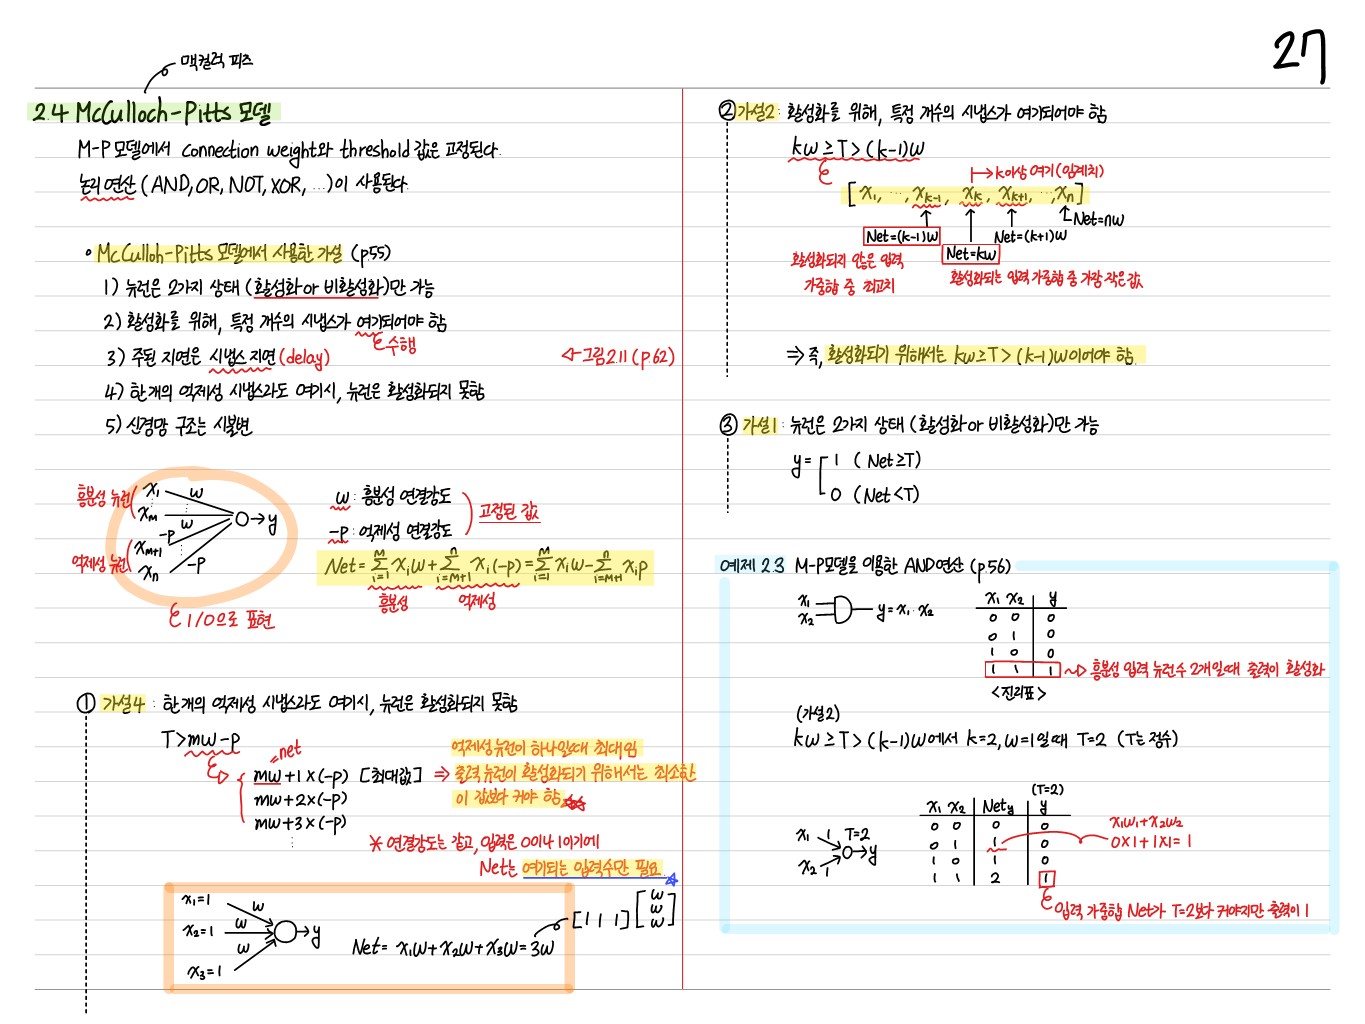 27
맥컬럭 피츠
2.4 McCulloch-Pitts 모델
M-P 모델에서 connection weight와 threshold 값은 고정된다.
논리 연산 (AND, OR, NOT, XOR, ...)이 사용된다.
• McCulloh-Pitts 모델에서 사용한 가설 (p55)
1) 뉴런은 2가지 상태 (활성화 or 비활성화)만 가능
2) 활성화를 위해, 특정 개수의 시냅스가 여기되어야 함
수행
3) 주된 지연은 시냅스 지연(delay)
◁-그림 2.11 (p62)
4) 한개의 억제성 시냅스라도 여기시, 뉴런은 활성화되지 못함
5) 신경망 구조는 시불변
흥분성 뉴런
x₁ w
x_M w
억제성 뉴런
x_{M+1} -p
x_n -p
→y
1/0으로 표현
w : 흥분성 연결강도
-p : 억제성 연결강도
고정된 값
Net = Σ_{i=1}^{M} x_i w + Σ_{i=M+1}^{n} x_i (-p) = Σ_{i=1}^{M} x_i w - Σ_{i=M+1}^{n} x_i p
흥분성 억제성
① 가설4 : 한개의 억제성 시냅스라도 여기시, 뉴런은 활성화되지 못함
T > mw-p
=net
mw+1×(-p) [최대값] ⇒
mw+2×(-p)
mw+3×(-p)
⋮
억제성 뉴런이 하나일때 최대임
출력 뉴런이 활성화되기 위해서는 최소한
이 값보다 커야 함
* 연결강도는 같고, 입력은 0이나 1이기에
Net는 여기되는 입력수만 필요
x₁=1 w
x₂=1 w
x₃=1 w
→y
Net = x₁w+x₂w+x₃w = 3w
[1 1 1] [w w w]
② 가설2 : 활성화를 위해, 특정 개수의 시냅스가 여기되어야 함
kw ≥ T > (k-1)w
↦ k이상 여기 (임계치)
[x₁, ..., x_{k-1}, x_k, x_{k+1}, ..., x_n]
Net=nw
Net=(k-1)w
Net=(k+1)w
Net=kw
활성화되지 않은 입력
가중합 중 최고치
활성화되는 입력 가중합 중 가장 작은 값
⇒ 즉, 활성화되기 위해서는 kw ≥ T > (k-1)w이어야 함.
③ 가설1 : 뉴런은 2가지 상태 (활성화 or 비활성화)만 가능
y = 1 (Net ≥ T)
0 (Net < T)
예제 2.3 M-P모델을 이용한 AND연산 (p56)
x₁
x₂
y = x₁ · x₂
x₁ x₂ y
0 0 0
0 1 0
1 0 0
1 1 1
~▷ 흥분성 입력 뉴런수 2개일때 출력이 활성화
<진리표>
(가설2)
kw ≥ T > (k-1)w에서 k=2, w=1일때 T=2 (T는 정수)
x₁ 1 T=2
x₂ 1
→y
(T=2)
x₁ x₂ Net_y y
0 0 0 0
0 1 1 0
1 0 1 0
1 1 2 1
x₁w₁+x₂w₂
0×1+1×1=1
입력 가중합 Net가 T=2보다 커야지만 출력이 1